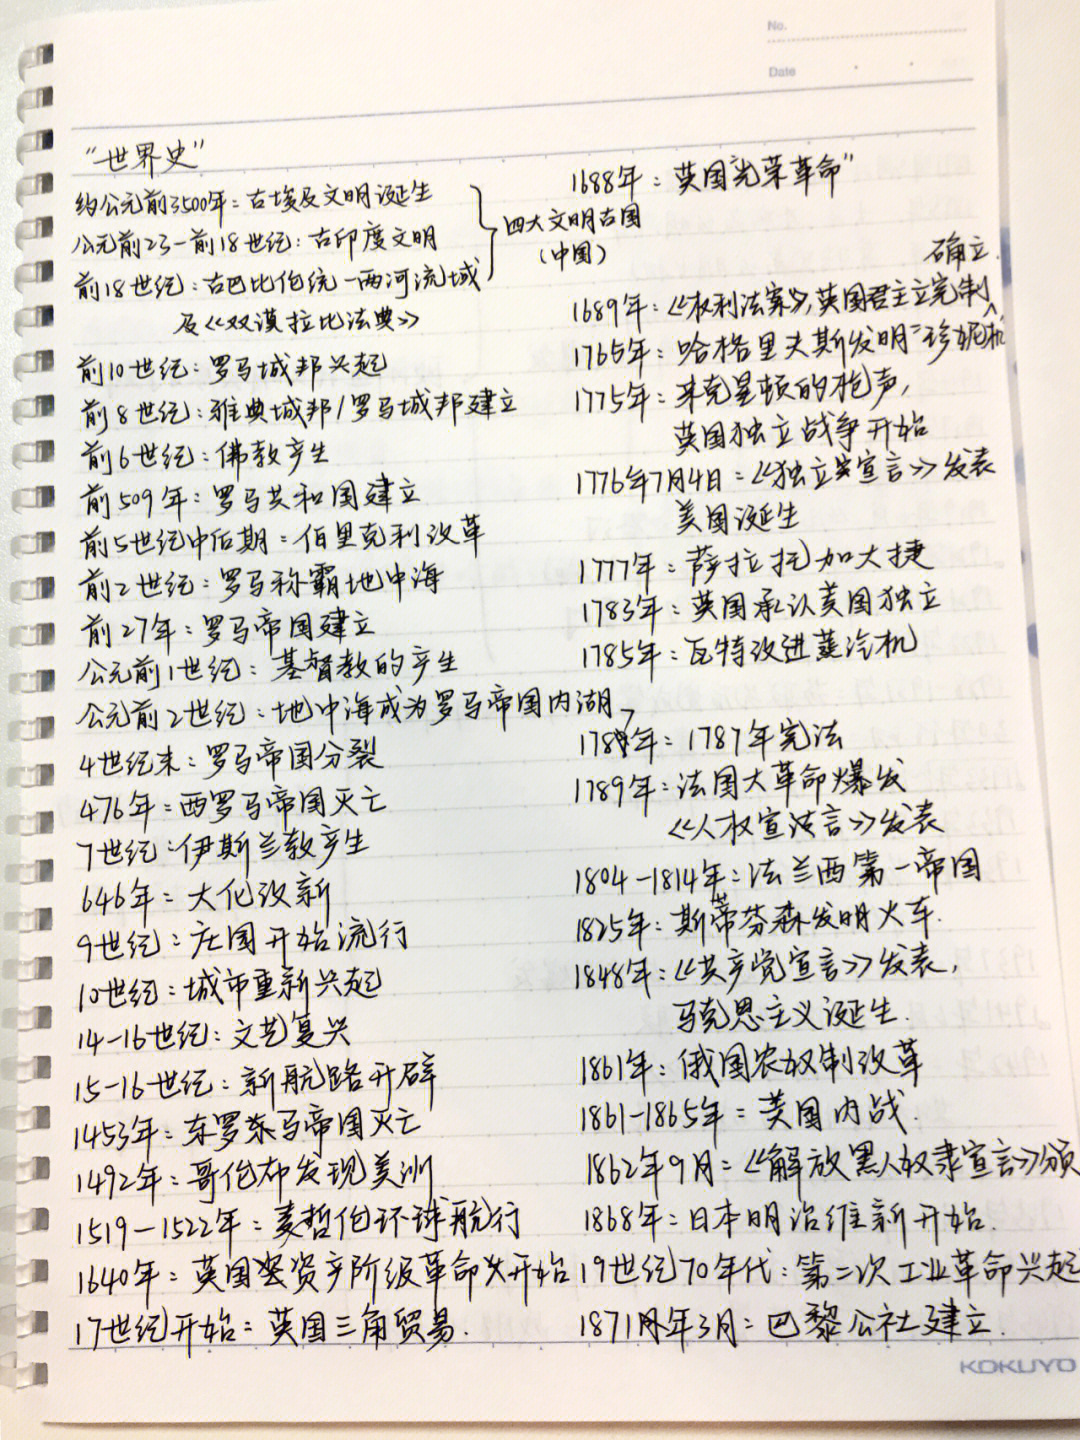 No.
Date
“世界史”
约公元前3500年：古埃及文明诞生
公元前23-前18世纪：古印度文明
前18世纪：古巴比伦统一两河流域
及《汉谟拉比法典》
四大文明古国
（中国）
前10世纪：罗马城邦兴起
前8世纪：雅典城邦/罗马城邦建立
前6世纪：佛教产生
前509年：罗马共和国建立
前5世纪中后期：伯里克利改革
前2世纪：罗马称霸地中海
前27年：罗马帝国建立
公元前1世纪：基督教的产生
公元前2世纪：地中海成为罗马帝国内湖
4世纪末：罗马帝国分裂
476年：西罗马帝国灭亡
7世纪：伊斯兰教产生
646年：大化改新
9世纪：庄园开始流行
10世纪：城市重新兴起
14-16世纪：文艺复兴
15-16世纪：新航路开辟
1453年：东罗马帝国灭亡
1492年：哥伦布发现美洲
1519-1522年：麦哲伦环球航行
1640年：英国资产阶级革命开始
17世纪开始：英国三角贸易.
1688年：英国光荣革命”
确立.
1689年：《权利法案》，英国君主立宪制
1765年：哈格里夫斯发明“珍妮机
1775年：来克星顿的枪声，
英国独立战争开始
1776年7月4日：《独立宣言》发表
美国诞生
1777年：萨拉托加大捷
1783年：英国承认美国独立
1785年：瓦特改进蒸汽机
1787年：1787年宪法
1789年：法国大革命爆发
《人权宣言》发表
1804-1814年：法兰西第一帝国
1825年：斯蒂芬森发明火车.
1848年：《共产党宣言》发表，
马克思主义诞生.
1861年：俄国农奴制改革
1861-1865年：美国内战.
1862年9月：《解放黑人奴隶宣言》颁
1868年：日本明治维新开始.
19世纪70年代：第二次工业革命兴起
1871年3月：巴黎公社建立.
KOKUYO